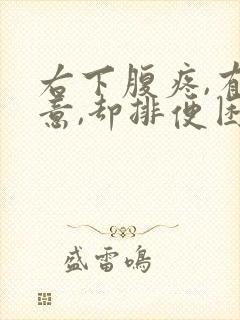 右下腹疼,有
意,却排便困
盛雷鸣